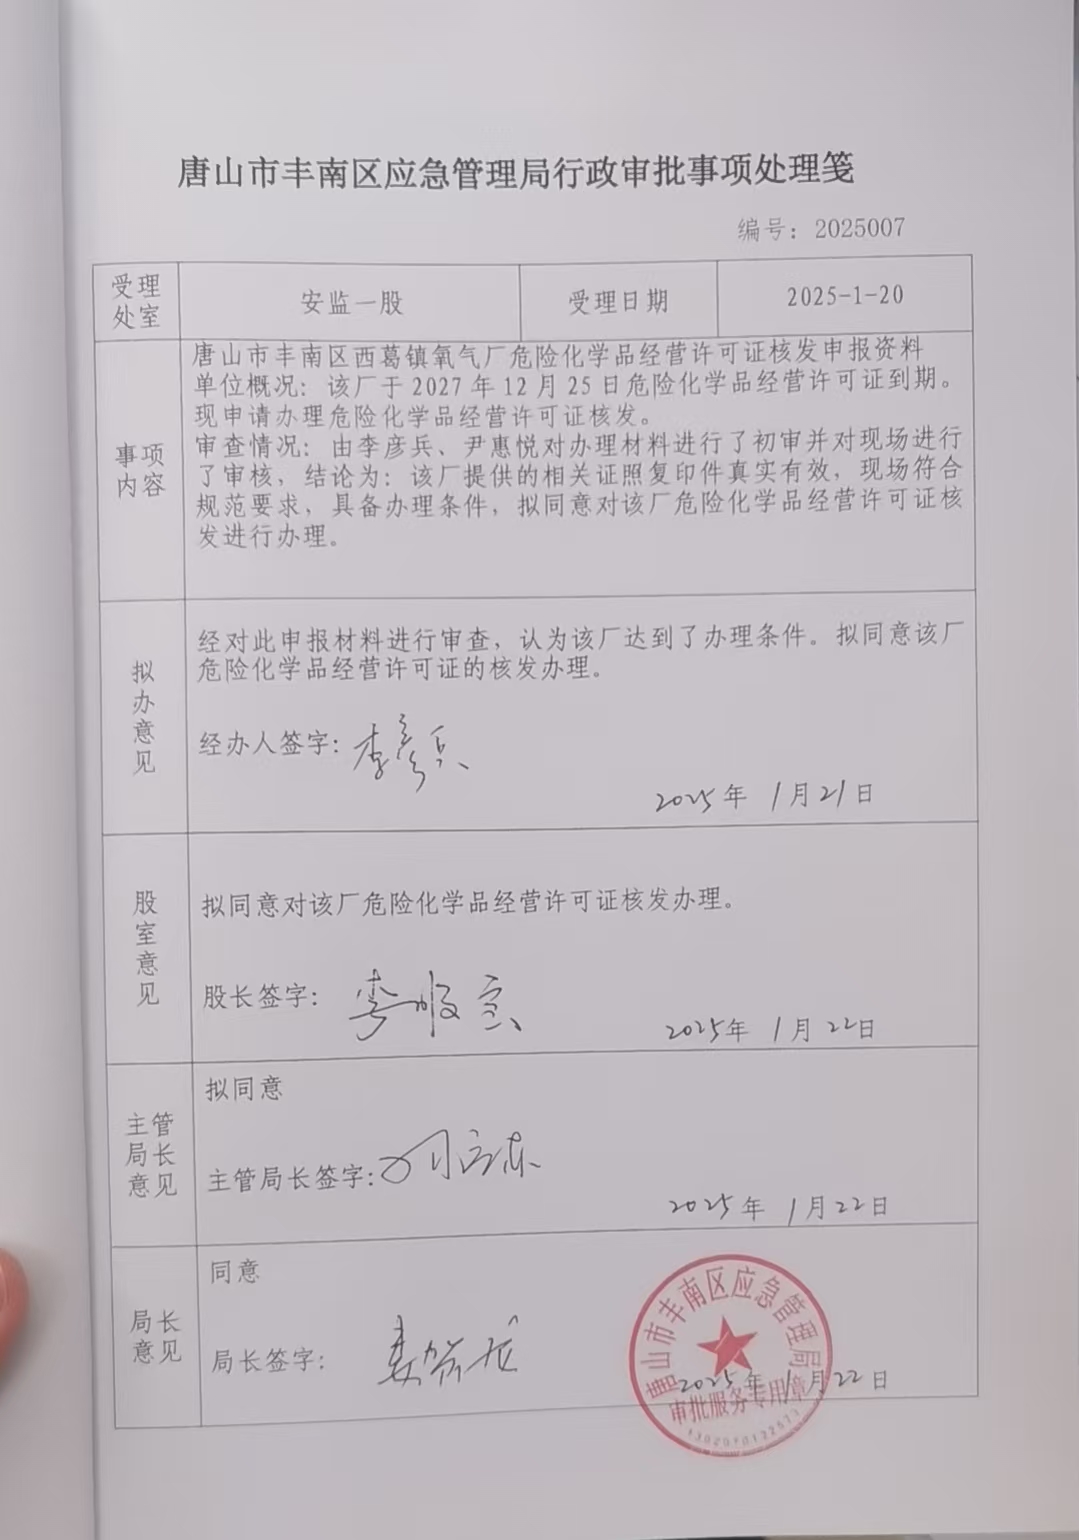 唐山市丰南区应急管理局行政审批事项处理笺
编号：2025007
受理
处室
安监一股
受理日期
2025-1-20
事项
内容
唐山市丰南区西葛镇氧气厂危险化学品经营许可证核发申报资料
单位概况：该厂于 2027 年 12 月 25 日危险化学品经营许可证到期。
现申请办理危险化学品经营许可证核发。
审查情况：由李彦兵、尹惠悦对办理材料进行了初审并对现场进行
了审核，结论为：该厂提供的相关证照复印件真实有效，现场符合
规范要求，具备办理条件，拟同意对该厂危险化学品经营许可证核
发进行办理。
拟
办
意
见
经对此申报材料进行审查，认为该厂达到了办理条件。拟同意该厂
危险化学品经营许可证的核发办理。
经办人签字：李彦兵
2025年 1月21日
股
室
意
见
拟同意对该厂危险化学品经营许可证核发办理。
股长签字：
2025年 1月22日
主管
局长
意见
拟同意
主管局长签字：
2025年 1月22日
局长
意见
同意
局长签字：
2025年 1月22日
唐山市丰南区应急管理局
审批服务专用章